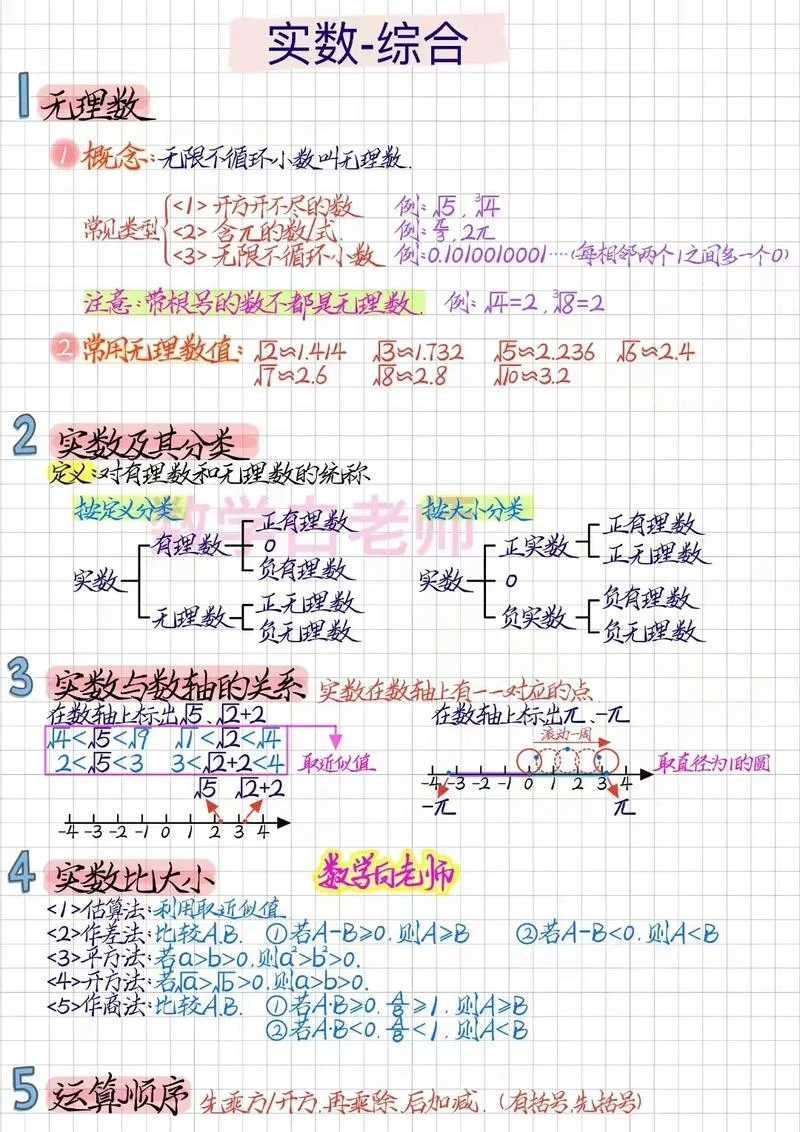 实数-综合
1 无理数
① 概念:无限不循环小数叫无理数.
常见类型
<1>开方开不尽的数 例:√5,³√4
<2>含π的数/式. 例:π/3,2π
<3>无限不循环小数 例:0.1010010001……(每相邻两个1之间多一个0)
注意:带根号的数不都是无理数. 例:√4=2,³√8=2
② 常用无理数值: √2≈1.414 √3≈1.732 √5≈2.236 √6≈2.4
√7≈2.6 √8≈2.8 √10≈3.2
2 实数及其分类
定义:对有理数和无理数的统称
数学白老师
按定义分类 按大小分类
实数
有理数
正有理数
0
负有理数
无理数
正无理数
负无理数
实数
正实数
正有理数
正无理数
0
负实数
负有理数
负无理数
3 实数与数轴的关系 实数在数轴上有一一对应的点
在数轴上标出√5、√2+2
√4<√5<√9 √1<√2<√4
2<√5<3 3<√2+2<4
取近似值
√5 √2+2
-4 -3 -2 -1 0 1 2 3 4
在数轴上标出π、-π
滚动一周
取直径为1的圆
-4 -3 -2 -1 0 1 2 3 4
-π π
4 实数比大小 数学白老师
<1>估算法:利用取近似值
<2>作差法:比较A.B. ①若A-B≥0,则A≥B ②若A-B<0,则A<B
<3>平方法:若a>b>0,则a²>b²>0.
<4>开方法:若√a>√b>0,则a>b>0.
<5>作商法:比较A.B. ①若A·B≥0,A/B≥1,则A≥B
②若A·B<0,A/B<1,则A<B
5 运算顺序 先乘方/开方,再乘除,后加减.(有括号,先括号)